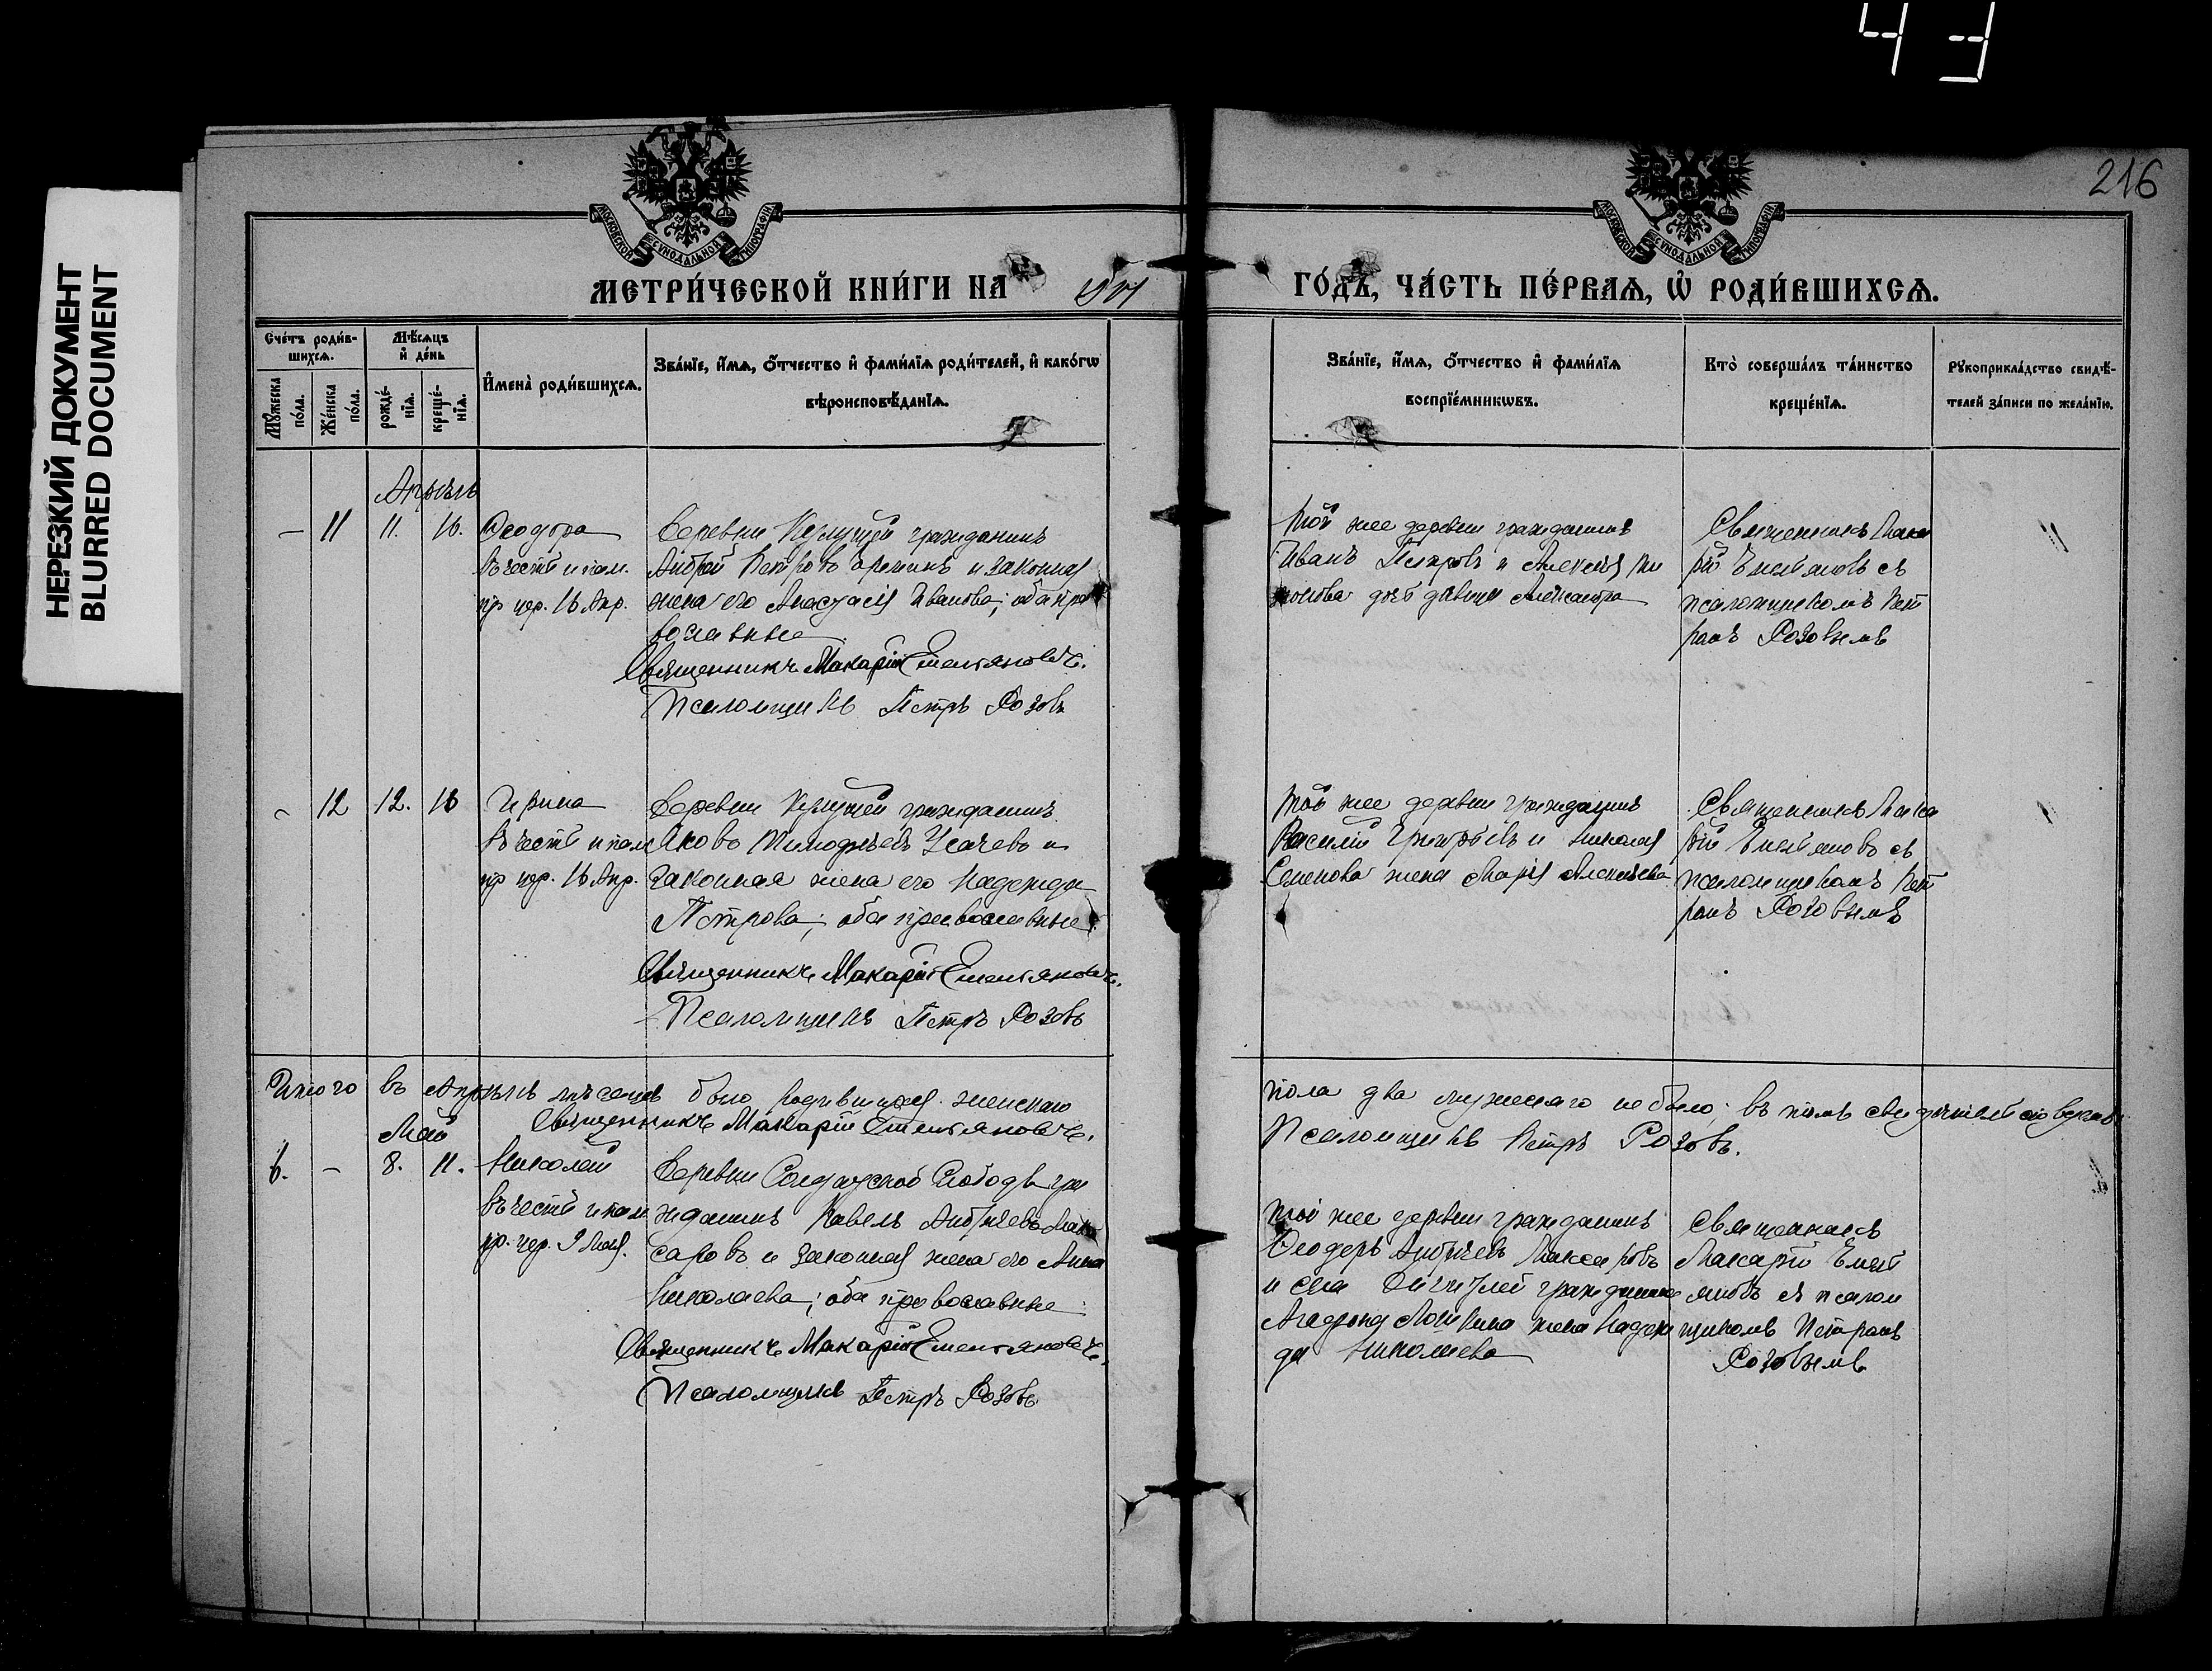 43
НЕРЕЗКИЙ ДОКУМЕНТ
BLURRED DOCUMENT
216
МОСКОВСКОЙ СѴНОДАЛЬНОЙ ТИПОГРАФІИ
МОСКОВСКОЙ СѴНОДАЛЬНОЙ ТИПОГРАФІИ
МЕТРИ́ЧЕСКОЙ КНИ́ГИ НА
ГО́ДЪ, ЧА́СТЬ ПЕ́РВАЯ, Ѽ РОДИ́ВШИХСЯ.
Сче́тъ роди́в-
шихся.
Мꙋ́жеска по́ла.
Же́нска по́ла.
Мѣ́сяцъ
и҆ де́нь
рожде́-
нїа.
креще́-
нїа.
И҆мена̀ роди́вшихся.
Зва́нїе, и҆́мя, ѻ҆́тчество и҆ фами́лїя роди́телей, и҆ како́гѡ
вѣроисповѣ́данїя.
Зва́нїе, и҆́мя, ѻ҆́тчество и҆ фами́лїя
воспрїе́мникѡвъ.
Кто̀ соверша́лъ та́инство
креще́нїя.
Рꙋкоприкла́дство свидѣ́-
телей за́писи по жела́нїю.
Апрѣль
– 11 11. 16. Ѳеодора
въ честь и пам.
пр. чер. 16 Апр.
Деревни гражданинъ
Андрей Петровъ и законная
жена его Анастасія Иванова; оба пра
вославные
Священникъ Макарій Емельяновъ.
Псаломщикъ Петръ Розовъ
Той же деревни гражданинъ
Иванъ Петровъ и Алексѣя
дочь дѣвица Александра
Священникъ Мака
рій Емельяновъ съ
псаломщикомъ Пет
ромъ Розовымъ
– 12 12. 16 Ирина
въ честь и пам
пр. чер. 16 Апр.
Деревни гражданинъ
Яковъ Тимофѣевъ Усачевъ и
законная жена его Надежда
Петрова; оба православные.
Священникъ Макарій Емельяновъ.
Псаломщикъ Петръ Розовъ
Той же деревни гражданинъ
Василій Григорьевъ и Николая
Семенова жена Марія Алексѣева
Священникъ Мака
рій Емельяновъ съ
псаломщикомъ Пет
ромъ Розовымъ
Итого въ Апрѣлѣ мѣсяцѣ было родившихся женскаго
пола два мужескаго не было; въ томъ свидѣтельствуемъ
Священникъ Макарій Емельяновъ.
Псаломщикъ Петръ Розовъ.
Май
6. – 8. 11. Николай
въ честь и пам
пр. чер. 9 Мая.
Деревни Солдатской Слободы гра
жданинъ Павелъ Андреевъ Мак
саровъ и законная жена его Анна
Николаева; оба православные
Священникъ Макарій Емельяновъ.
Псаломщикъ Петръ Розовъ.
Той же деревни гражданинъ
Ѳеодоръ Андреевъ Максаровъ
и села гражданина
жена Надеж
да Николаева
Священникъ
Макарій Емель
яновъ съ псалом
щикомъ Петромъ
Розовымъ